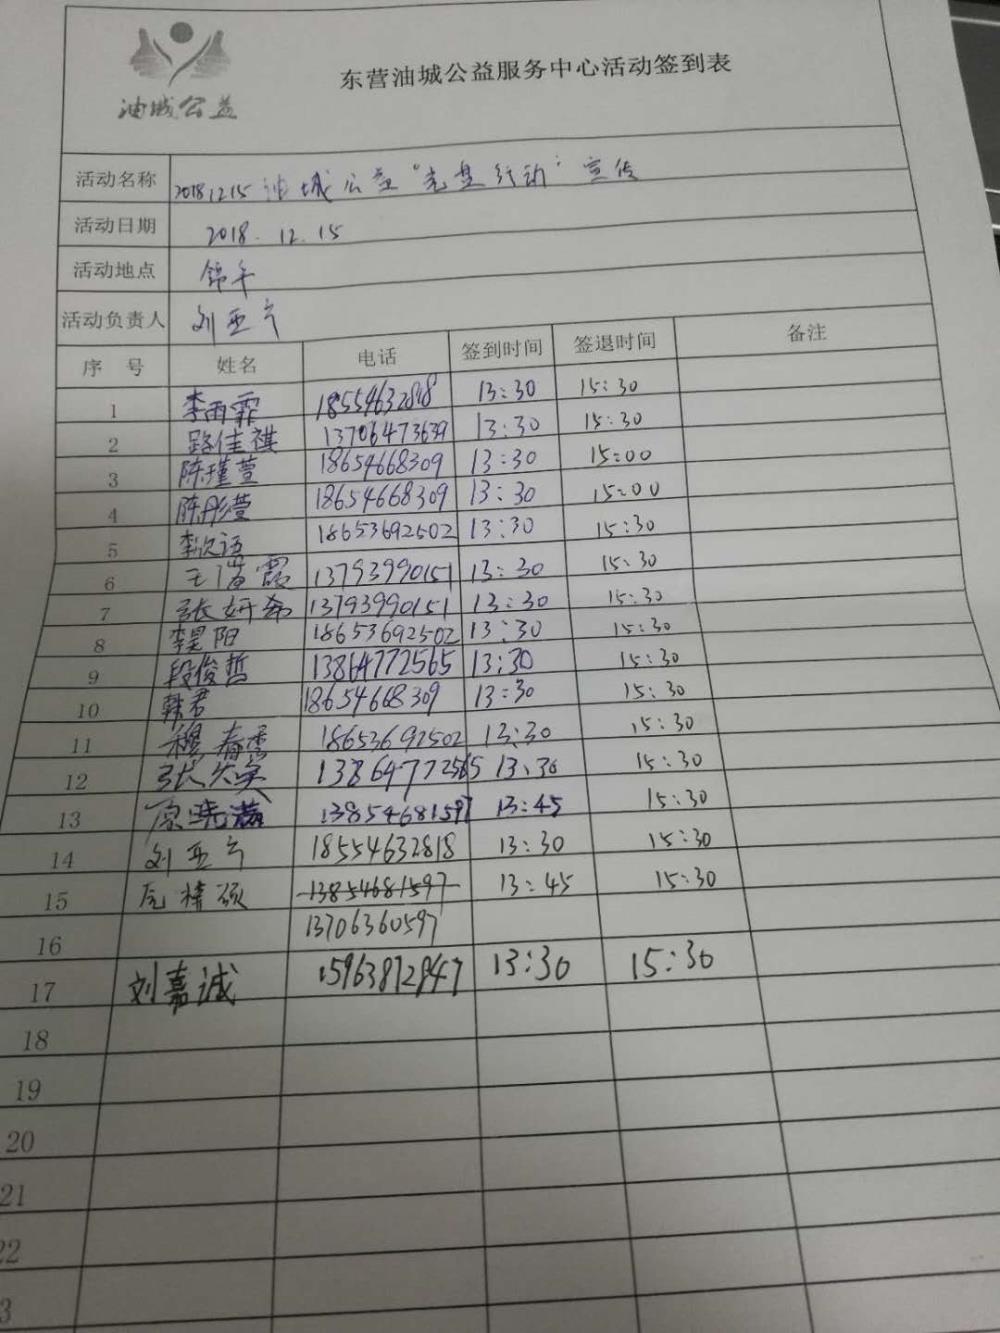 油城公益
东营油城公益服务中心活动签到表
活动名称 20181215 油城公益"光盘行动"宣传
活动日期 2018.12.15
活动地点 锦华
活动负责人 刘亚宁
序 号 姓名 电话 签到时间 签退时间 备注
1 李雨霏 18554632818 13:30 15:30
2 路佳祺 13706473639 13:30 15:30
3 陈瑾萱 18654668309 13:30 15:00
4 陈彤萱 18654668309 13:30 15:00
5 18653692502 13:30 15:30
6 13793990151 13:30 15:30
7 张妍希 13793990151 13:30 15:30
8 李昊阳 18653692502 13:30 15:30
9 段俊哲 13864772565 13:30 15:30
10 韩君 18654668309 13:30 15:30
11 穆春香 18653692502 13:30 15:30
12 13864772565 13:30 15:30
13 13854681597 13:45 15:30
14 刘亚宁 18554632818 13:30 15:30
15 13854681597 13:45 15:30
16 13706360597
17 刘嘉诚 15963872947 13:30 15:30
18
19
20
21
22
3